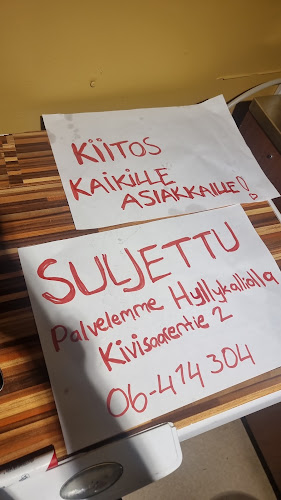 KIITOS
KAIKILLE
ASIAKKAILLE!
SULJETTU
Palvelemme Hyllykalliolla
Kivisaarentie 2
06-414 304